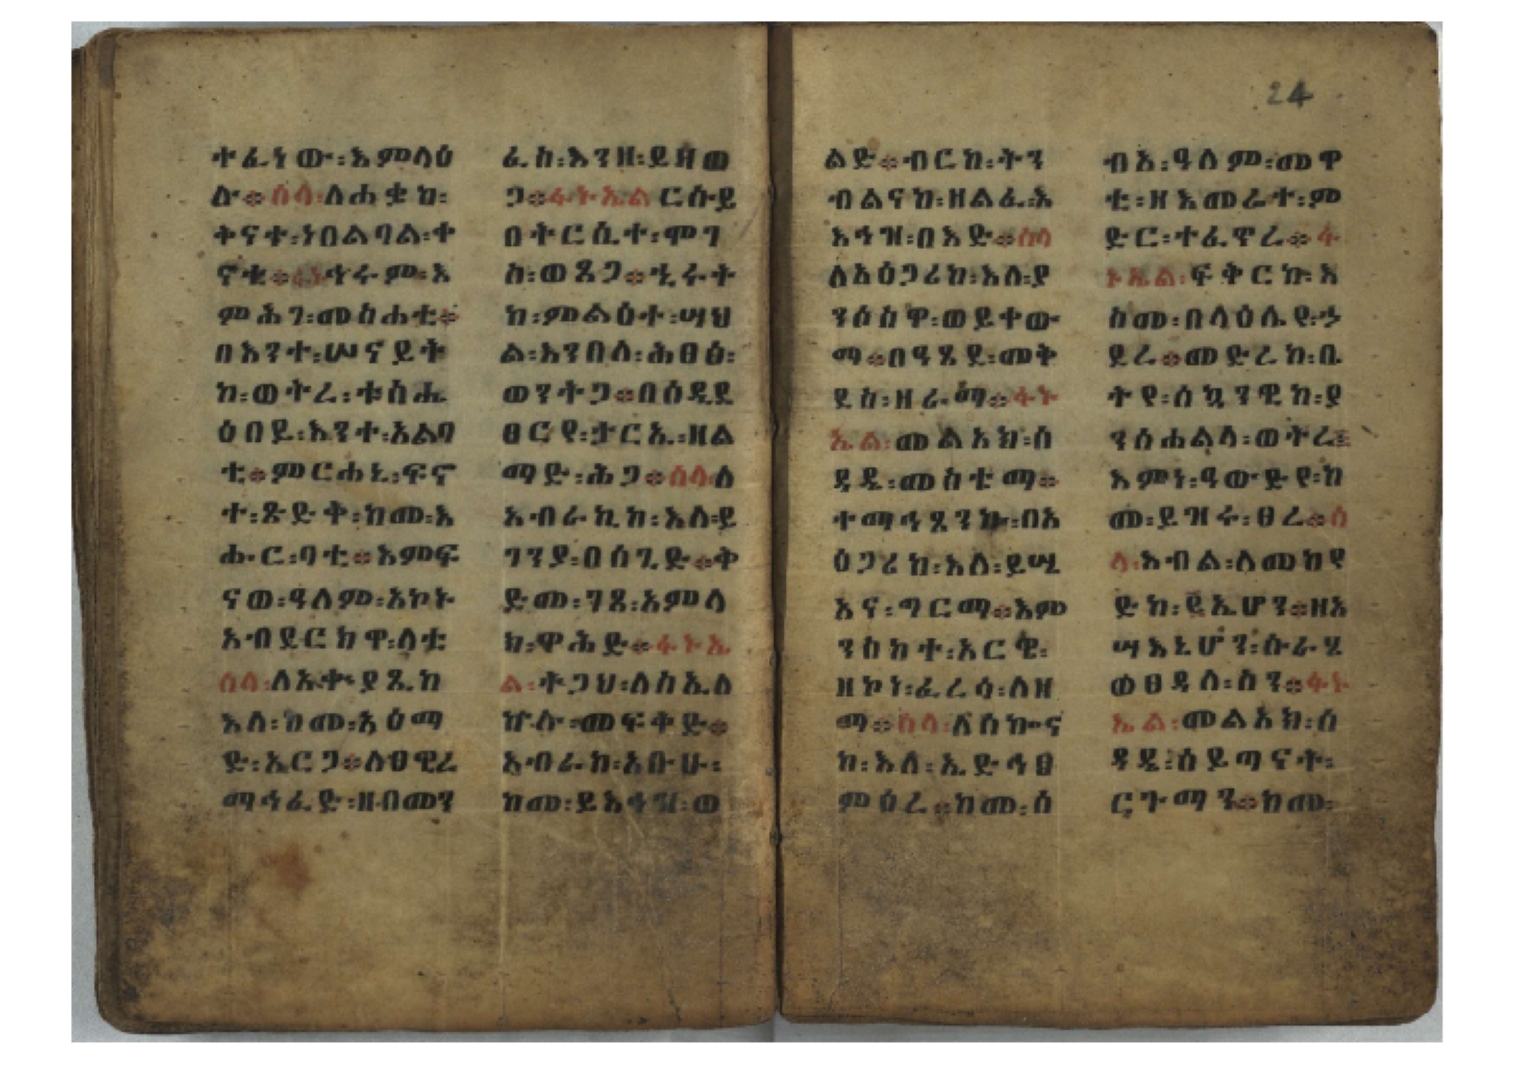 ተፈነው፡እምላዕ
ሉ፨ሰላ፡ለሐቌከ፡
ቅናተ፡ነበልባል፡ተ
ምሕገ፡መስሐቲ፨
በእንተ፡ሠናይት
ከ፡ወትረ፡ቱስሔ
ዕበይ፡እንተ፡አልባ
ቲ፨ምርሐኒ፡ፍኖ
ተ፡ጽድቅ፡ከመ፡እ
ሑር፡ባቲ፨እምፍ
ናወ፡ዓለም፡አኮኑ
አብደርከዋ፡ለቲ
ሰላ፡ለአቍያጺከ
እለ፡ከመ፡አዕማ
ድ፡አርጋ፨ለፀዊረ
ማኅፈድ፡ዘብመን
ፈከ፡እንዘ፡ይዘወ
ጋ፨ፋኑኤልርሱይ
በትርሢተ፡ሞገ
ስ፡ወጸጋ፨ኂሩት
ከ፡ምልዕተ፡ሣህ
ል፡እንበለ፡ሕፀፅ፡
ወንትጋ፨በዕዲደ
ማድ፡ሕጋ፨ሰላለ
አብራኪከ፡እለ፡ይ
ገንያ፡በሰጊድ፨ቅ
ድመ፡ገጸ፡አምላ
ክ፡ዋሕድ፨ፋኑኤ
ል፡ትጋህ፡ለስኢለ
ኵሉ፡መፍቅድ፨
አብራከ፡አቡሁ፡
ከመ፡ይእኅዝ፡ወ
24
ልድ፨ብርከ፡ትን
ብልናከ፡ዘልፈ፡እ
እኅዝ፡በእድ፨ሰላ
ለአዕጋሪከ፡እለ፡ያ
ንሶስዋ፡ወይተው
ማ፨በዓጸደ፡መቅ
ደስ፡ዘራማ፨ፋኑ
ኤል፡መልአክ፡ሰ
ዳዴ፡መስቴማ፨
ዕጋሪከ፡እለ፡ይሤ
አና፡ግርማ፨እም
ንስከተ፡አርዌ፡
ዘኮነ፡ፈረሳ፡ለዘ
ማ፨ሰላ፡ለሰኰና
ከ፡እለ፡ኢድኅፀ
ምዕረ፨ከመ፡ሰ
ብአ፡ዓለም፡መዋ
ቲ፡ዘእመሬተ፡ም
ድር፡ተፈጥረ፨ፋ
ኑኤል፡ፍቅርኩ፡እ
ስመ፡በላዕሌየ፡ኃ
ደረ፨መድረከ፡ቤ
ትየ፡ሰኳንዊከ፡ያ
ንሰሐልላ፡ወትረ፨
እምነ፡ዓውድየ፡ከ
መ፡ይዝሩ፡ፀረ፨ሰ
ላ፡እብል፡ለመከየ
ድከ፡ደኢሆን፨ዘአ
ሣእኒሆን፡ሱራሂ
ወፀዳለ፡ስን፨ፋኑ
ኤል፡መልአክ፡ሰ
ዳዴ፡ሰይጣናት፡
ርጉማን፨ከመ፡